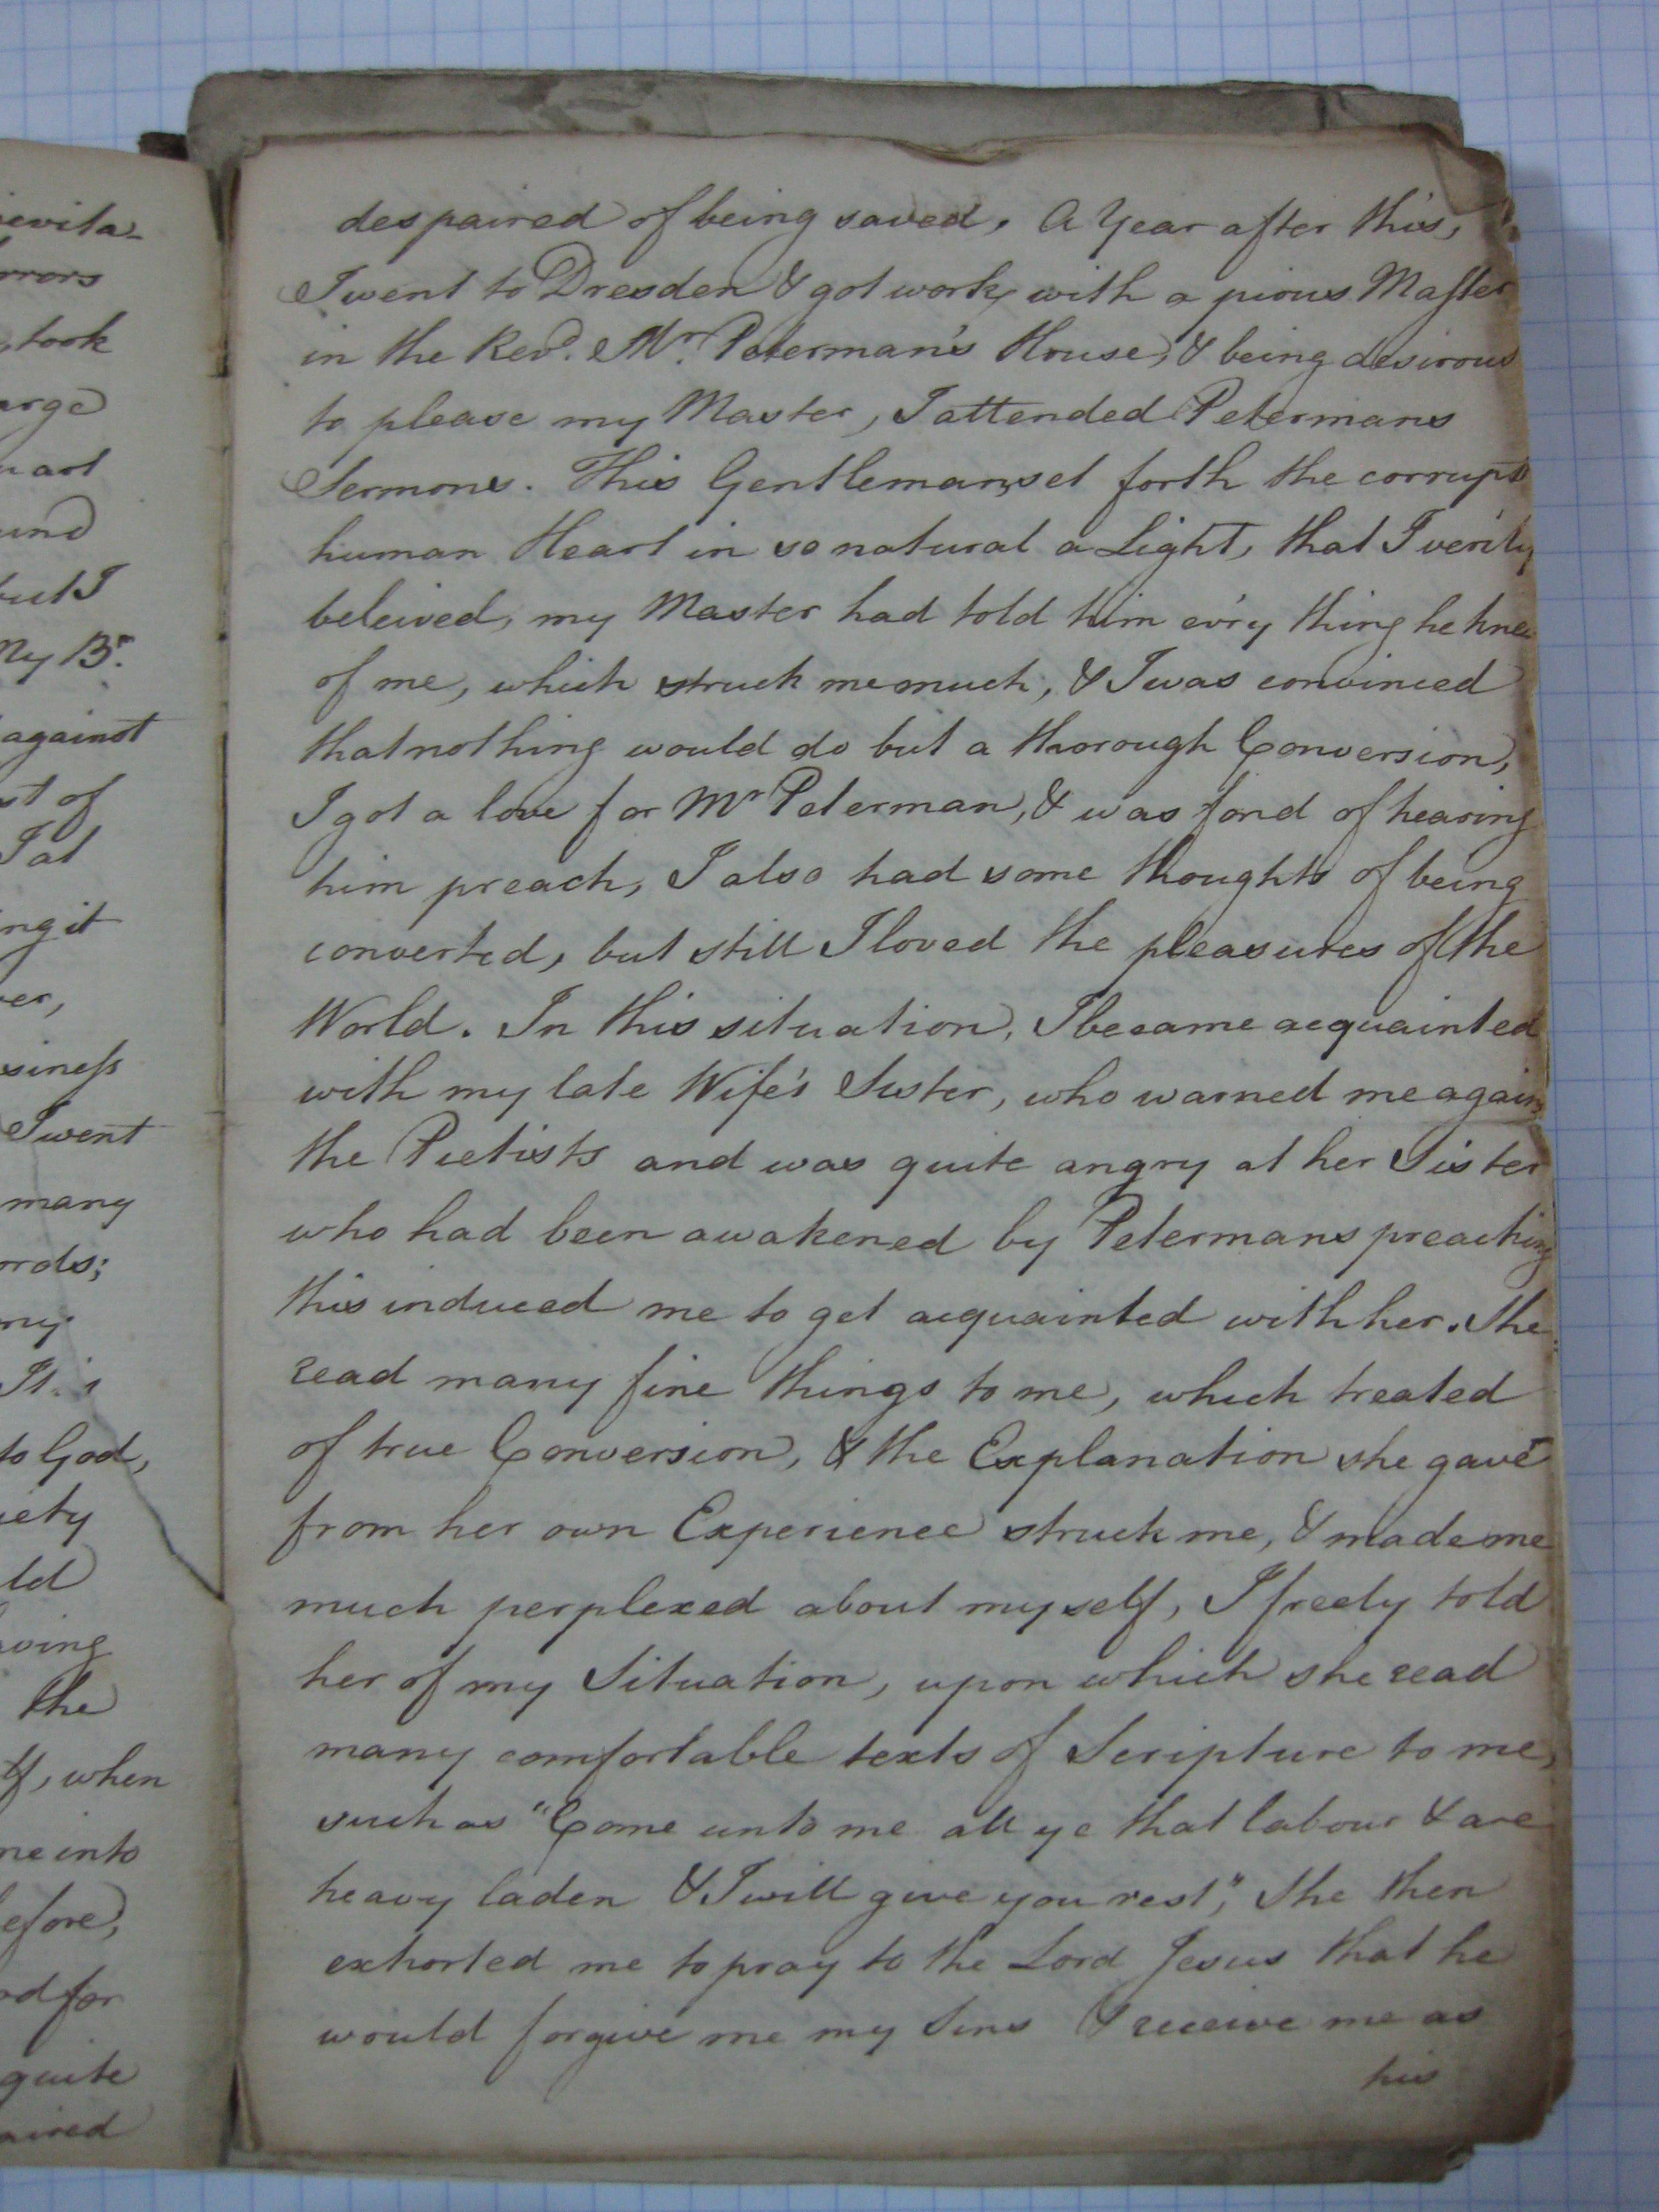 evita-
rrors
took
arge
art
und
but I
My Br.
against
st of
I at
ng it
er,
siness
I went
many
ords;
my
It
to God,
iety
ld
ving
the
when
me into
efore,
d for
quite
aired
despaired of being saved, A Year after this,
I went to Dresden & got work, with a pious Master
in the Revd. Mr. Peterman's House, & being desirous
to please my Master, I attended Petermans
Sermons. This Gentleman, set forth the corrupt
human Heart in so natural a Light, that I verily
beleived, my Master had told him ev'ry thing he knew
of me, which struck me much, & I was convinced
that nothing would do but a thorough Conversion,
I got a love for Mr Peterman, & was fond of hearing
him preach, I also had some thoughts of being
converted, but still I loved the pleasures of the
World. In this situation, I became acquainted
with my late Wife's Sister, who warned me again
the Pietists and was quite angry at her Sister
who had been awakened by Petermans preaching
this induced me to get acquainted with her. She
read many fine things to me, which treated
of true Conversion, & the Explanation she gave
from her own Experience struck me, & made me
much perplexed about myself, I freely told
her of my Situation, upon which she read
many comfortable texts of Scripture to me,
such as "Come unto me all ye that labour & are
heavy laden & I will give you rest", She then
exhorted me to pray to the Lord Jesus that he
would forgive me my Sins & receive me as
his